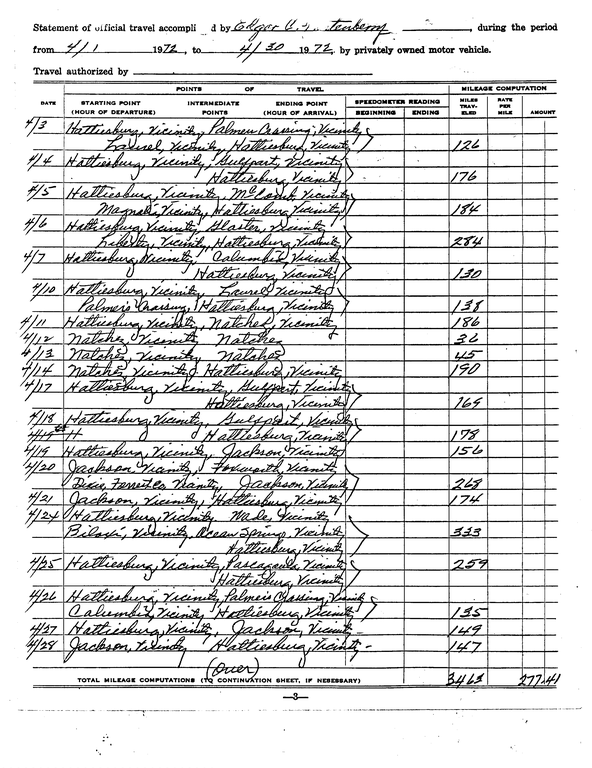 Statement of official travel accompli d by Edgar C. , during the period
from 4/1 1972, to 4/30 1972, by privately owned motor vehicle.
Travel authorized by
POINTS OF TRAVEL MILEAGE COMPUTATION
DATE STARTING POINT (HOUR OF DEPARTURE) INTERMEDIATE POINTS ENDING POINT (HOUR OF ARRIVAL) SPEEDOMETER READING BEGINNING ENDING MILES TRAVELED RATE PER MILE AMOUNT
4/3 Hattiesburg, Vicinity, Palmer Crossing, Vicinity
Laurel, Vicinity, Hattiesburg, Vicinity 126
4/4 Hattiesburg, Vicinity, Gulfport, Vicinity
Hattiesburg, Vicinity 176
4/5 Hattiesburg, Vicinity, McComb, Vicinity
Magnolia, Vicinity, Hattiesburg, Vicinity 184
4/6 Hattiesburg, Vicinity, Gloster, Vicinity
Liberty, Vicinity, Hattiesburg, Vicinity 284
4/7 Hattiesburg, Vicinity, Columbia, Vicinity
Hattiesburg, Vicinity 130
4/10 Hattiesburg, Vicinity, Laurel, Vicinity
Palmer's Crossing, Hattiesburg, Vicinity 138
4/11 Hattiesburg, Vicinity, Natchez, Vicinity 186
4/12 Natchez, Vicinity, Natchez 36
4/13 Natchez, Vicinity Natchez 45
4/14 Natchez, Vicinity, Hattiesburg, Vicinity 190
4/17 Hattiesburg, Vicinity, Gulfport, Vicinity
Hattiesburg, Vicinity 169
4/18 Hattiesburg, Vicinity, Gulfport, Vicinity
4/19 H Hattiesburg, Vicinity 178
4/19 Hattiesburg, Vicinity, Jackson, Vicinity 156
4/20 Jackson, Vicinity, Foxworth, Vicinity
Dixie, Forrest Co. Vicinity, Jackson, Vicinity 268
4/21 Jackson, Vicinity, Hattiesburg, Vicinity 174
4/24 Hattiesburg, Vicinity, Wade, Vicinity
Biloxi, Vicinity, Ocean Springs, Vicinity 333
Hattiesburg, Vicinity
4/25 Hattiesburg, Vicinity, Pascagoula, Vicinity 259
Hattiesburg, Vicinity
4/26 Hattiesburg, Vicinity, Palmer's Crossing, Vicinity
Columbia, Vicinity, Hattiesburg, Vicinity 135
4/27 Hattiesburg, Vicinity, Jackson, Vicinity - 149
4/28 Jackson, Vicinity Hattiesburg, Vicinity - 147
(Over)
TOTAL MILEAGE COMPUTATIONS (TO CONTINUATION SHEET, IF NESESSARY) 3463 277.41
—3—